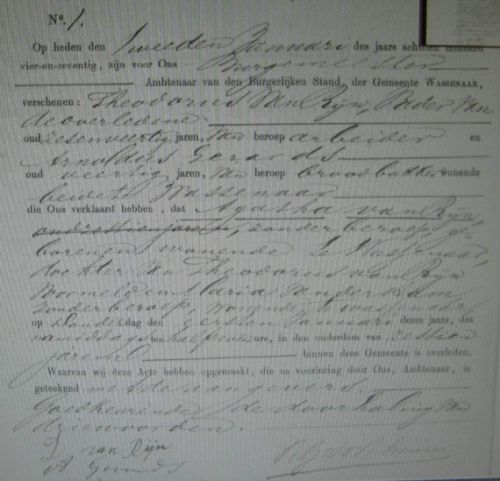 No. 1.
Op heden den tweeden Januari des jaars achttien honderd
vier-en-zeventig, zijn voor Ons Burgemeester
Ambtenaar van den Burgerlijken Stand, der Gemeente WASSENAAR,
verschenen: Theodorus van Rijn, vader van
de overledene
oud zesenveertig jaren, van beroep arbeider en
Arnoldus Gerards
oud veertig jaren, van beroep broodbakker wonende
beide te Wassenaar
die Ons verklaard hebben, dat Agatha van Rijn
oud zestien jaren, zonder beroep, ge-
boren en wonende te Wassenaar,
dochter van Theodorus van Rijn
voormeld en Maria van der
zonder beroep, wonende te
op Donderdag den eersten Januari dezes jaars, des
namiddags ten half ure, in den ouderdom van zestien
jaren binnen deze Gemeente is overleden.
Waarvan wij deze Acte hebben opgemaakt, die na voorlezing door Ons, Ambtenaar, is
geteekend met de aangevers.
Goedkeurende de doorhaling van
drie woorden.
T. van Rijn
A Gerards